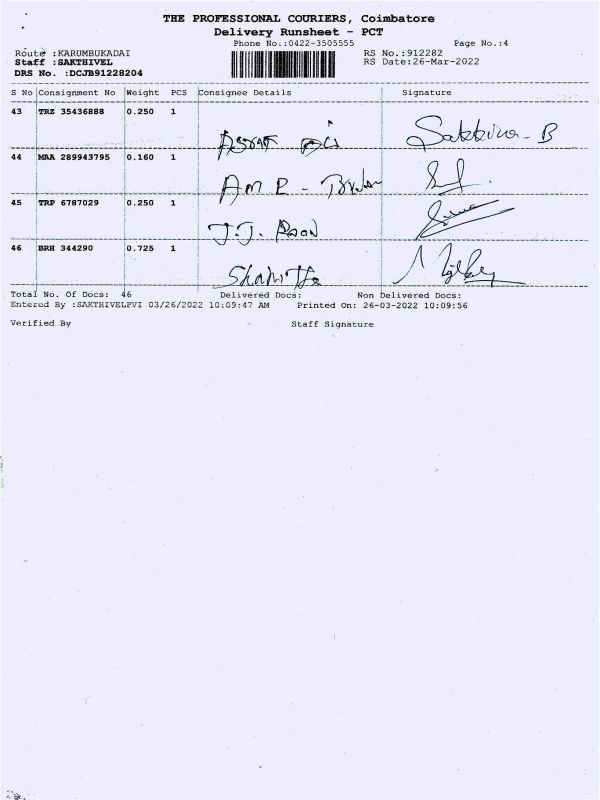 THE PROFESSIONAL COURIERS, Coimbatore
Delivery Runsheet - PCT
Phone No.:0422-3505555 Page No.:4
Route :KARUMBUKADAI RS No.:912282
Staff :SAKTHIVEL RS Date:26-Mar-2022
DRS No. :DCJB91228204
S No Consignment No Weight PCS Consignee Details Signature
43 TRZ 35436888 0.250 1
44 MAA 289943795 0.160 1
45 TRP 6787029 0.250 1
J.J.
46 BRH 344290 0.725 1
Total No. Of Docs: 46 Delivered Docs: Non Delivered Docs:
Entered By :SAKTHIVELPVI 03/26/2022 10:09:47 AM Printed On: 26-03-2022 10:09:56
Verified By Staff Signature